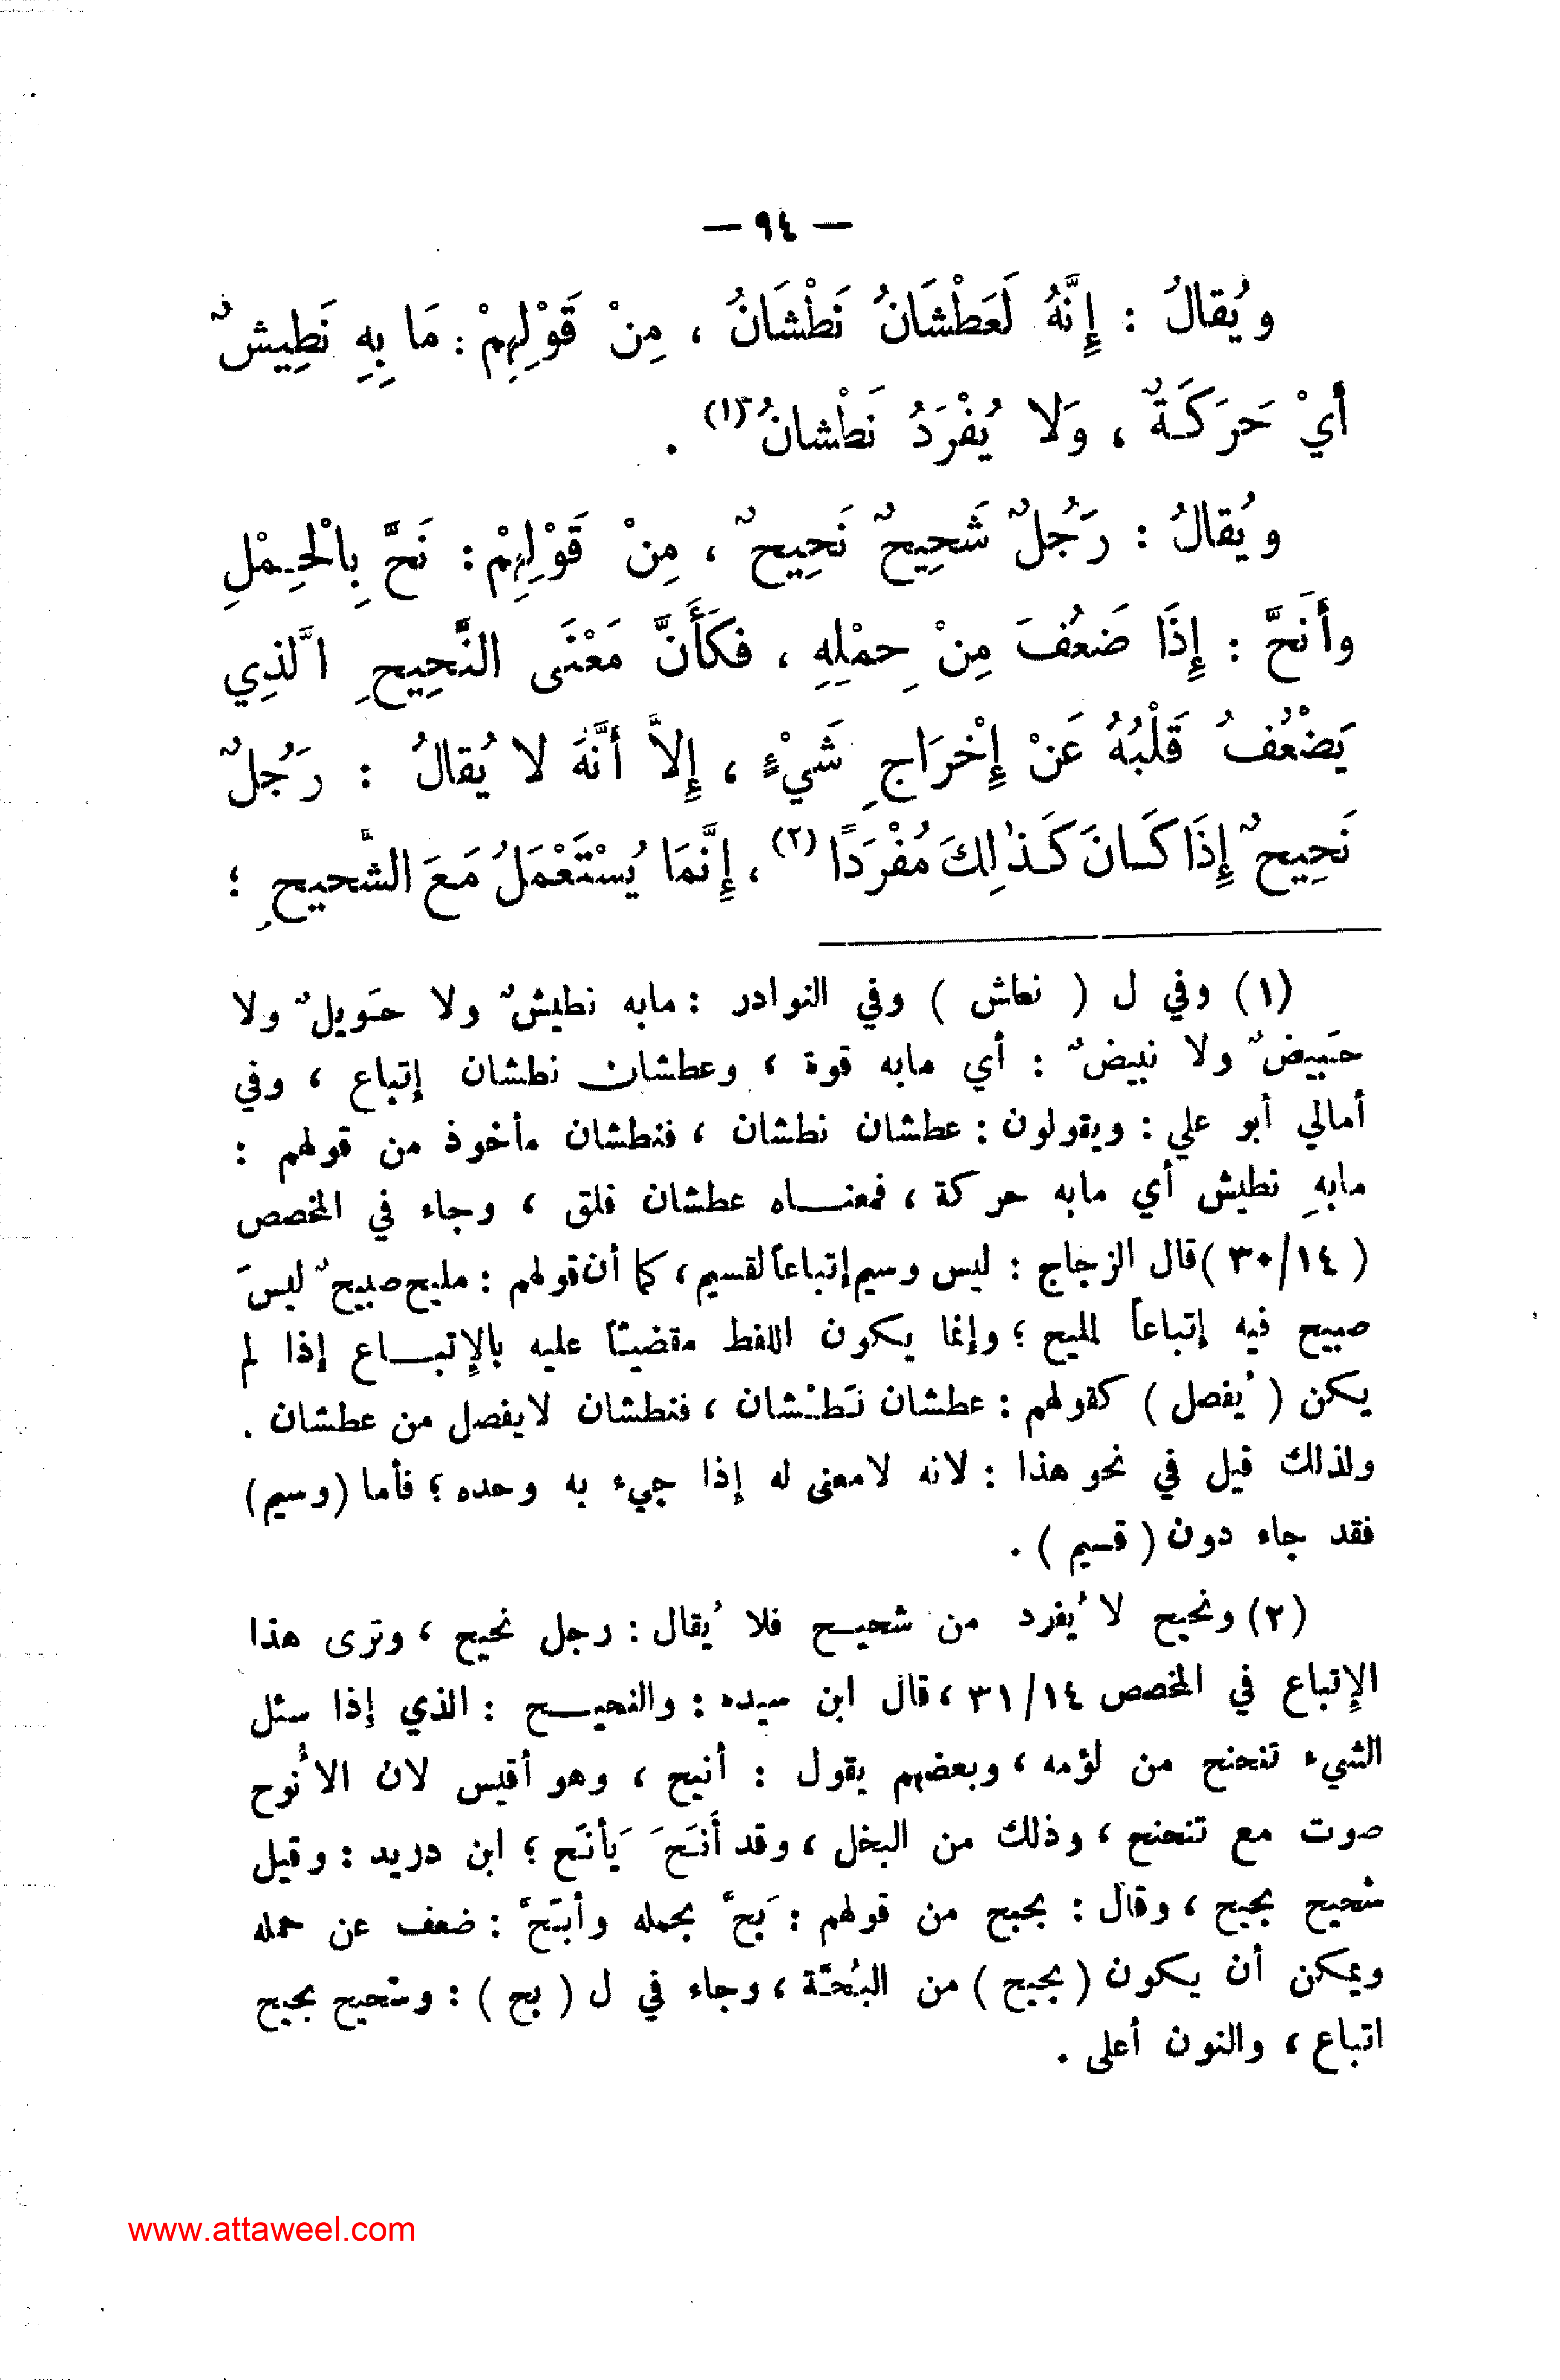 — ٩٤ —
ويُقالُ : إِنَّهُ لَعَطْشَانُ نَطْشَانُ ، مِنْ قَوْلِهِمْ : مَا بِهِ نَطِيشٌ
أيْ حَرَكَةٌ ، وَلا يُفْرَدُ نَطْشانُ (١) .
ويُقالُ : رَجُلٌ شَحِيحٌ نَحِيحٌ ، مِنْ قَوْلِهِمْ : نَحَّ بِالْحِمْلِ
وأَنَحَّ : إِذَا ضَعُفَ مِنْ حِمْلِهِ ، فكَأَنَّ مَعْنَى النَّحِيحِ الَّذِي
يَضْعُفُ قَلْبُهُ عَنْ إِخْرَاجِ شَيْءٍ ، إِلاَّ أَنَّهُ لا يُقالُ : رَجُلٌ
نَحِيحٌ إِذَا كَانَ كَذٰلِكَ مُفْرَدًا (٢) ، إِنَّمَا يُسْتَعْمَلُ مَعَ الشَّحيحِ ؛
(١) وفي ل ( نطش ) وفي النوادر : مابه نطيشٌ ولا حَويلٌ ولا
حَبيضٌ ولا نبيضٌ : أي مابه قوة ، وعطشان نطشان إتباع ، وفي
أمالي أبو علي : ويقولون : عطشان نطشان ، فنطشان مأخوذ من قولهم :
مابهِ نطيش أي مابه حركة ، فمعناه عطشان قلق ، وجاء في المخصص
( ٣٠/١٤ ) قال الزجاج : ليس وسيم إتباعاً لقسيم ، كما أن قولهم : مليح صبيحٌ ليسَ
صبيح فيه إتباعاً لمليح ؛ وإنما يكون اللفظ مقضيّاً عليه بالإتباع إذا لم
يكن ( يُفصل ) كقولهم : عطشان نَطْشان ، فنطشان لايفصل من عطشان .
ولذلك قيل في نحو هذا : لانه لامعنى له إذا جيء به وحده ؛ فأما (وسيم)
فقد جاء دون ( قسيم ) .
(٢) ونحيح لا يُفرد من شحيح فلا يُقال : رجل نحيح ، وترى هذا
الإتباع في المخصص ٣١/١٤ ، قال ابن سيده : والنحيح : الذي إذا سئل
الشيء تنحنح من لؤمه ، وبعضهم يقول : أنيح ، وهو أقيس لان الأنُوح
صوت مع تنحنح ، وذلك من البخل ، وقد أَنَحَ يَأنَح ؛ ابن دريد : وقيل
شحيح بحيح ، وقال : بحيح من قولهم : بَحَّ بحمله وأبَحَّ : ضعف عن حمله
ويمكن أن يكون ( بحيح ) من البُحَّة ، وجاء في ل ( بح ) : وشحيح بحيح
اتباع ، والنون أعلى .
www.attaweel.com